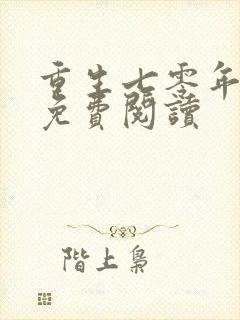 重生七零年
免費閱讀
階上梟